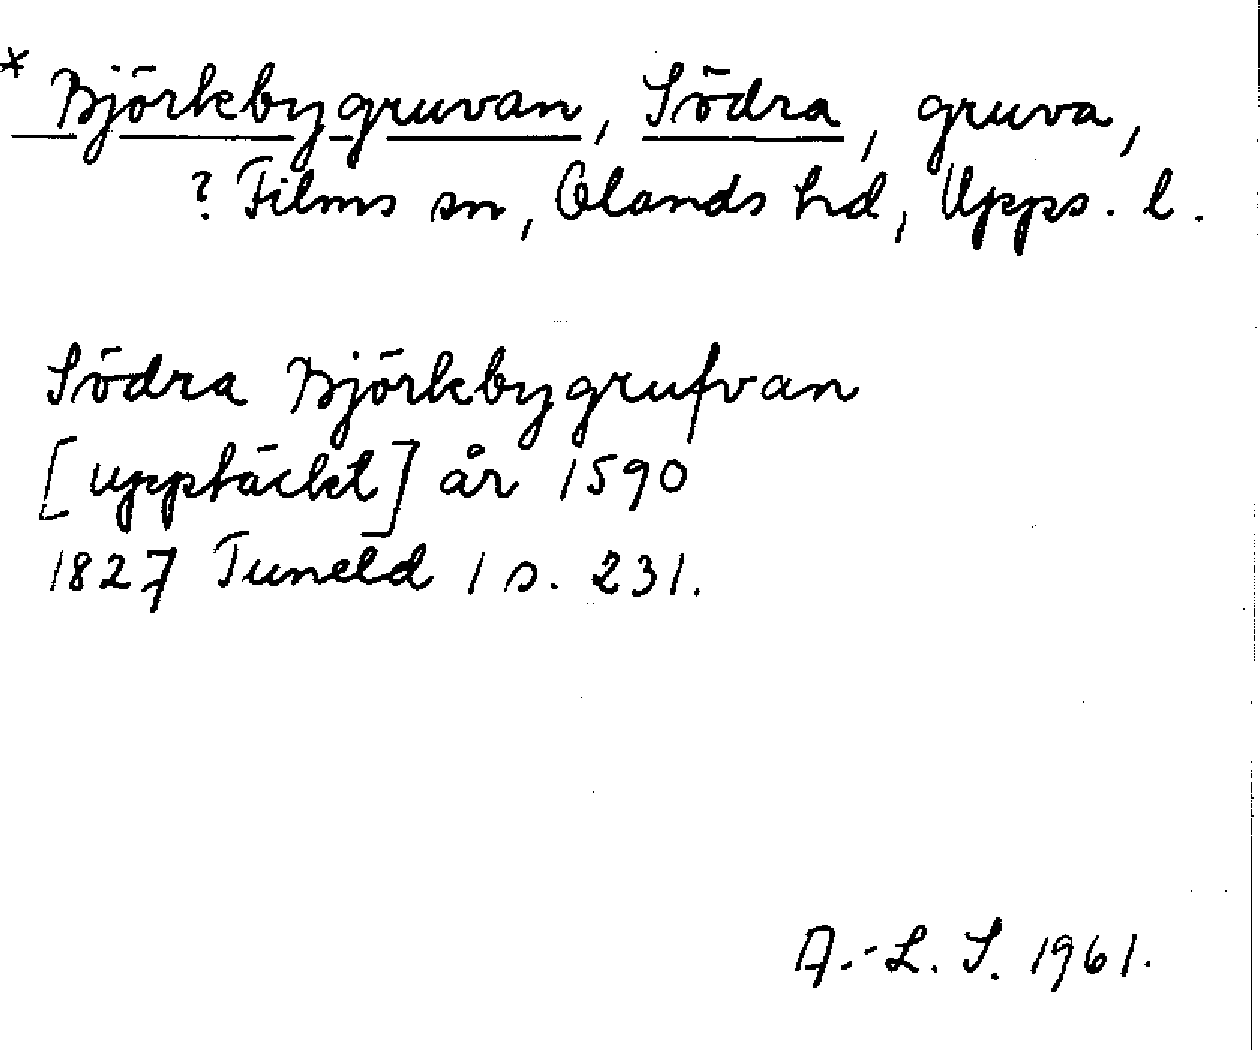 * Björkbygruvan, Södra, gruva,
? Films sn, Olands hd, Upps. l.
Södra Björkbygrufvan
[upptäckt] år 1590
1827 Tuneld 1 s. 231.
A.-L. S. 1961.